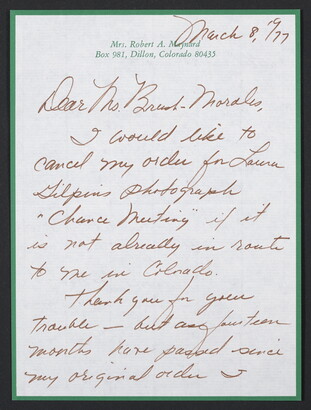 March 8, 1977
Mrs. Robert A. Maynard
Box 981, Dillon, Colorado 80435
Dear Ms. Brush-Morales,
I would like to
cancel my order for Laura
Gilpin's photograph
"Chance Meeting" if it
is not already in route
to me in Colorado.
Thank you for your
trouble — but as fourteen
months have passed since
my original order I